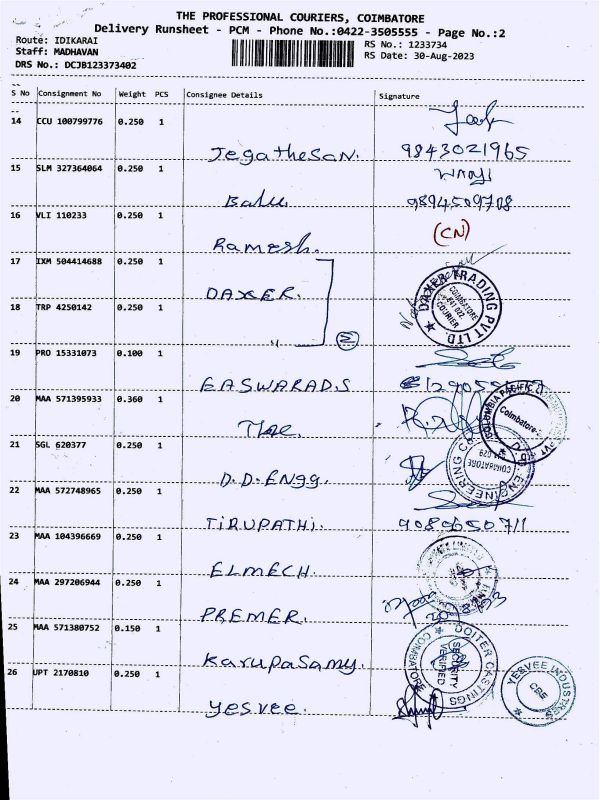 THE PROFESSIONAL COURIERS, COIMBATORE
Delivery Runsheet - PCM - Phone No.:0422-3505555 - Page No.:2
Route: IDIKARAI
RS No.: 1233734
Staff: MADHAVAN
RS Date: 30-Aug-2023
DRS No.: DCJB123373402
S No Consignment No Weight PCS Consignee Details Signature
14 CCU 100799776 0.250 1
Jegathesan. 9843021965
15 SLM 327364064 0.250 1
Balu. 9894509708
16 VLI 110233 0.250 1
(CN)
Ramesh.
17 IXM 504414688 0.250 1
DAXER.
DAXER TRADING PVT LTD.
COIMBATORE
641 022
COURIER
18 TRP 4250142 0.250 1
"
19 PRO 15331073 0.100 1
EASWARAD.S
20 MAA 571395933 0.360 1
COLUMBIA PACIFIC
Coimbatore-
21 SGL 620377 0.250 1
ENGINEERING
COIMBATORE
D.D.ENgg.
22 MAA 572748965 0.250 1
TIRUPATHI.
23 MAA 104396669 0.250 1
ELMECH.
24 MAA 297206944 0.250 1
PREMER.
25 MAA 571380752 0.150 1
Karupasamy.
DOITER CASTINGS
COIMBATORE
SECURITY
VERIFIED
26 UPT 2170810 0.250 1
yesvee.
YESVEE INDUSTRIES
CBE